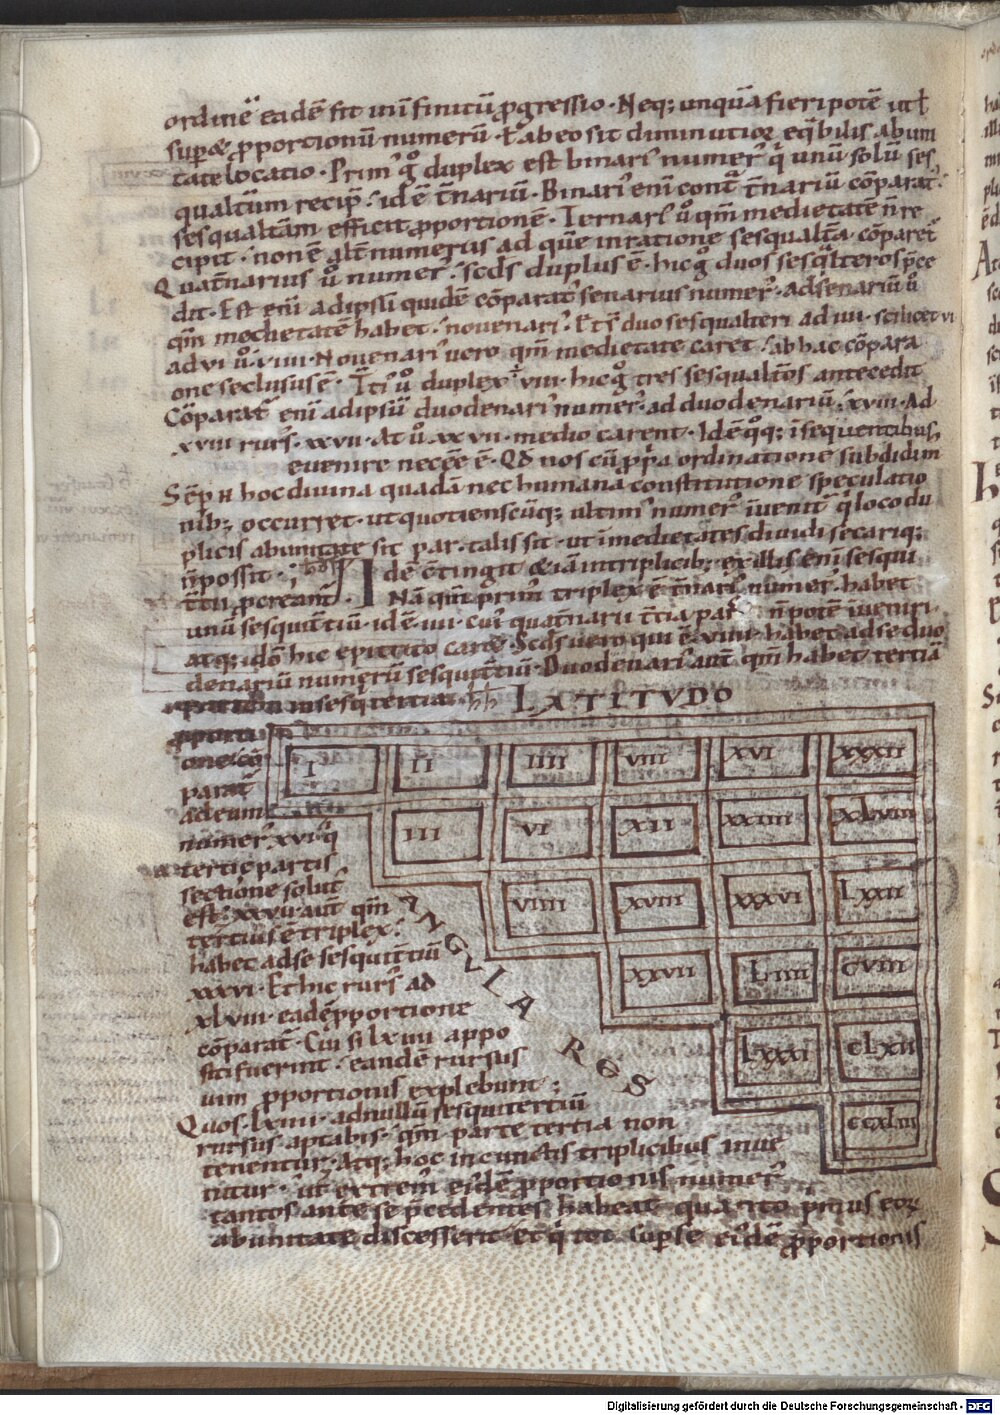 ordinē eadē fit in infinitū ꝓgressio · Neq; unquā fieri potē ut ł
sup&̄ ꝓportionū numerū · ł ab eo sit diminutior eq̄bilis ab uni
tate locatio · Prim᾿ g̊ duplex est binari᾿ numer᾿ q̇ unū solū ses
qualtum recip̄ · id ē t̄nariū · Binari᾿ eni contᵃ t̄nariū cōparat᾿
sesqualtām efficit ꝓportionē · Ternari᾿ ů qm̄ medietatē n̄ re
cipit · non ē alt̄ numerus ad quē in ratione sesqualt̄a cōparet᾿
Quat̄narius ů numer᾿ · scds duplus ē · hic g̊ duos sesq̇lteros p̄ce
dit · Est eni ad ipsū quidē cōparat᾿ senarius numer᾿ · ad senariū ů
qm̄ medietatē habet · novenari᾿ · Et s̄ duo sesqualteri ad iiii · scilicet vi
ad vi ů · viiii · Novenari᾿ vero qm̄ medietate caret · ab hac cōpara
one seclusus ē · T̄ti᾿ ů duplex ÷ viii · hic g̊ tres sesqualt̄os antecedit
Cōparat᾿ eni ad ipsū duodenari᾿ numer᾿ · ad duodenariū · xviii · Ad
xviii rurs᾿ · xxvii · At ů xxvii · medio carent · Idē q̊q; i sequentibus
evenire necēe ē · Qd nos cū ꝓp̄a ordinatione subdidim᾿
Sēp n̄ hoc divina quadā nec humana constitutione speculatio
nib; occurret · ut quotienscūq; ultim᾿ numer᾿ ivenit᾿ q̇ loco du
plicis ab unitate sit par · talis sit · ut i medietates dividi secariq;
n̄ possit ·
Idē c̄tingit & iā in triplicib; ex illis eni sesqui
t̄tii ꝓcreant᾿ · Nā qm̄ prim᾿ triplex ē t̄nari᾿ numer᾿ · habet
unū sesquit̄tiū · id ē · iiii · cui᾿ quat̄narii t̄tia par n̄ potē iveniri
atq; idō hic epitrito car& · Scds vero qui ē · viiii · habet ad se duo
denariū numerū sesquit̄tiū · Duodenari᾿ aut̄ qm̄ habet tertiā
LATITVDO
ꝓporti
one cō
parat᾿
ad eum
numer᾿ xvi q̇
tertię partis
sectione solut᾿
est · xxvii aut̄ qm̄
tertius ē triplex ·
habet ad se sesquit̄tiū
xxxvi · Et hic rurs᾿ ad
xlviii · eadē ꝓportione
cōparat᾿ · Cui si lxiiii appo
siti fuerint · eandē rursus
vim ꝓportionis explebunt ·
Quos · lxiiii · ad nullū sesquitertiū
rursus aptabis · qm̄ parte tertia non
tenentur · Atq; hoc in cunctis triplicibus inve
nitur · ut extrem᾿ ei᾿dē ꝓportionis numer᾿
tantos ante se p̄cedentes habeat quanto p̄mus eoꝝ
ab unitate discesserit · et q̇ tot sup̄ se ei᾿dē ꝓportionis
I II IIII VIII XVI XXXII
III VI XII XXIIII XLVIII
VIIII XVIII XXXVI LXXII
XXVII LIIII CVIII
LXXXI CLXII
CCXLIII
ANGVLARES
Digitalisierung gefördert durch die Deutsche Forschungsgemeinschaft - DFG